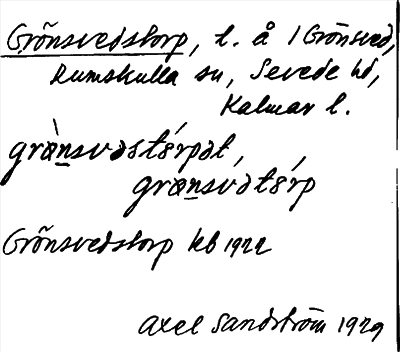 Grönsvedstorp, l. å 1 Grönsved,
Rumskulla sn, Sevede hd,
Kalmar l.
græ̀nsvəstórpət,
græ̀nsvətórp
Grönsvedstorp kb 1922
Axel Sandström 1929